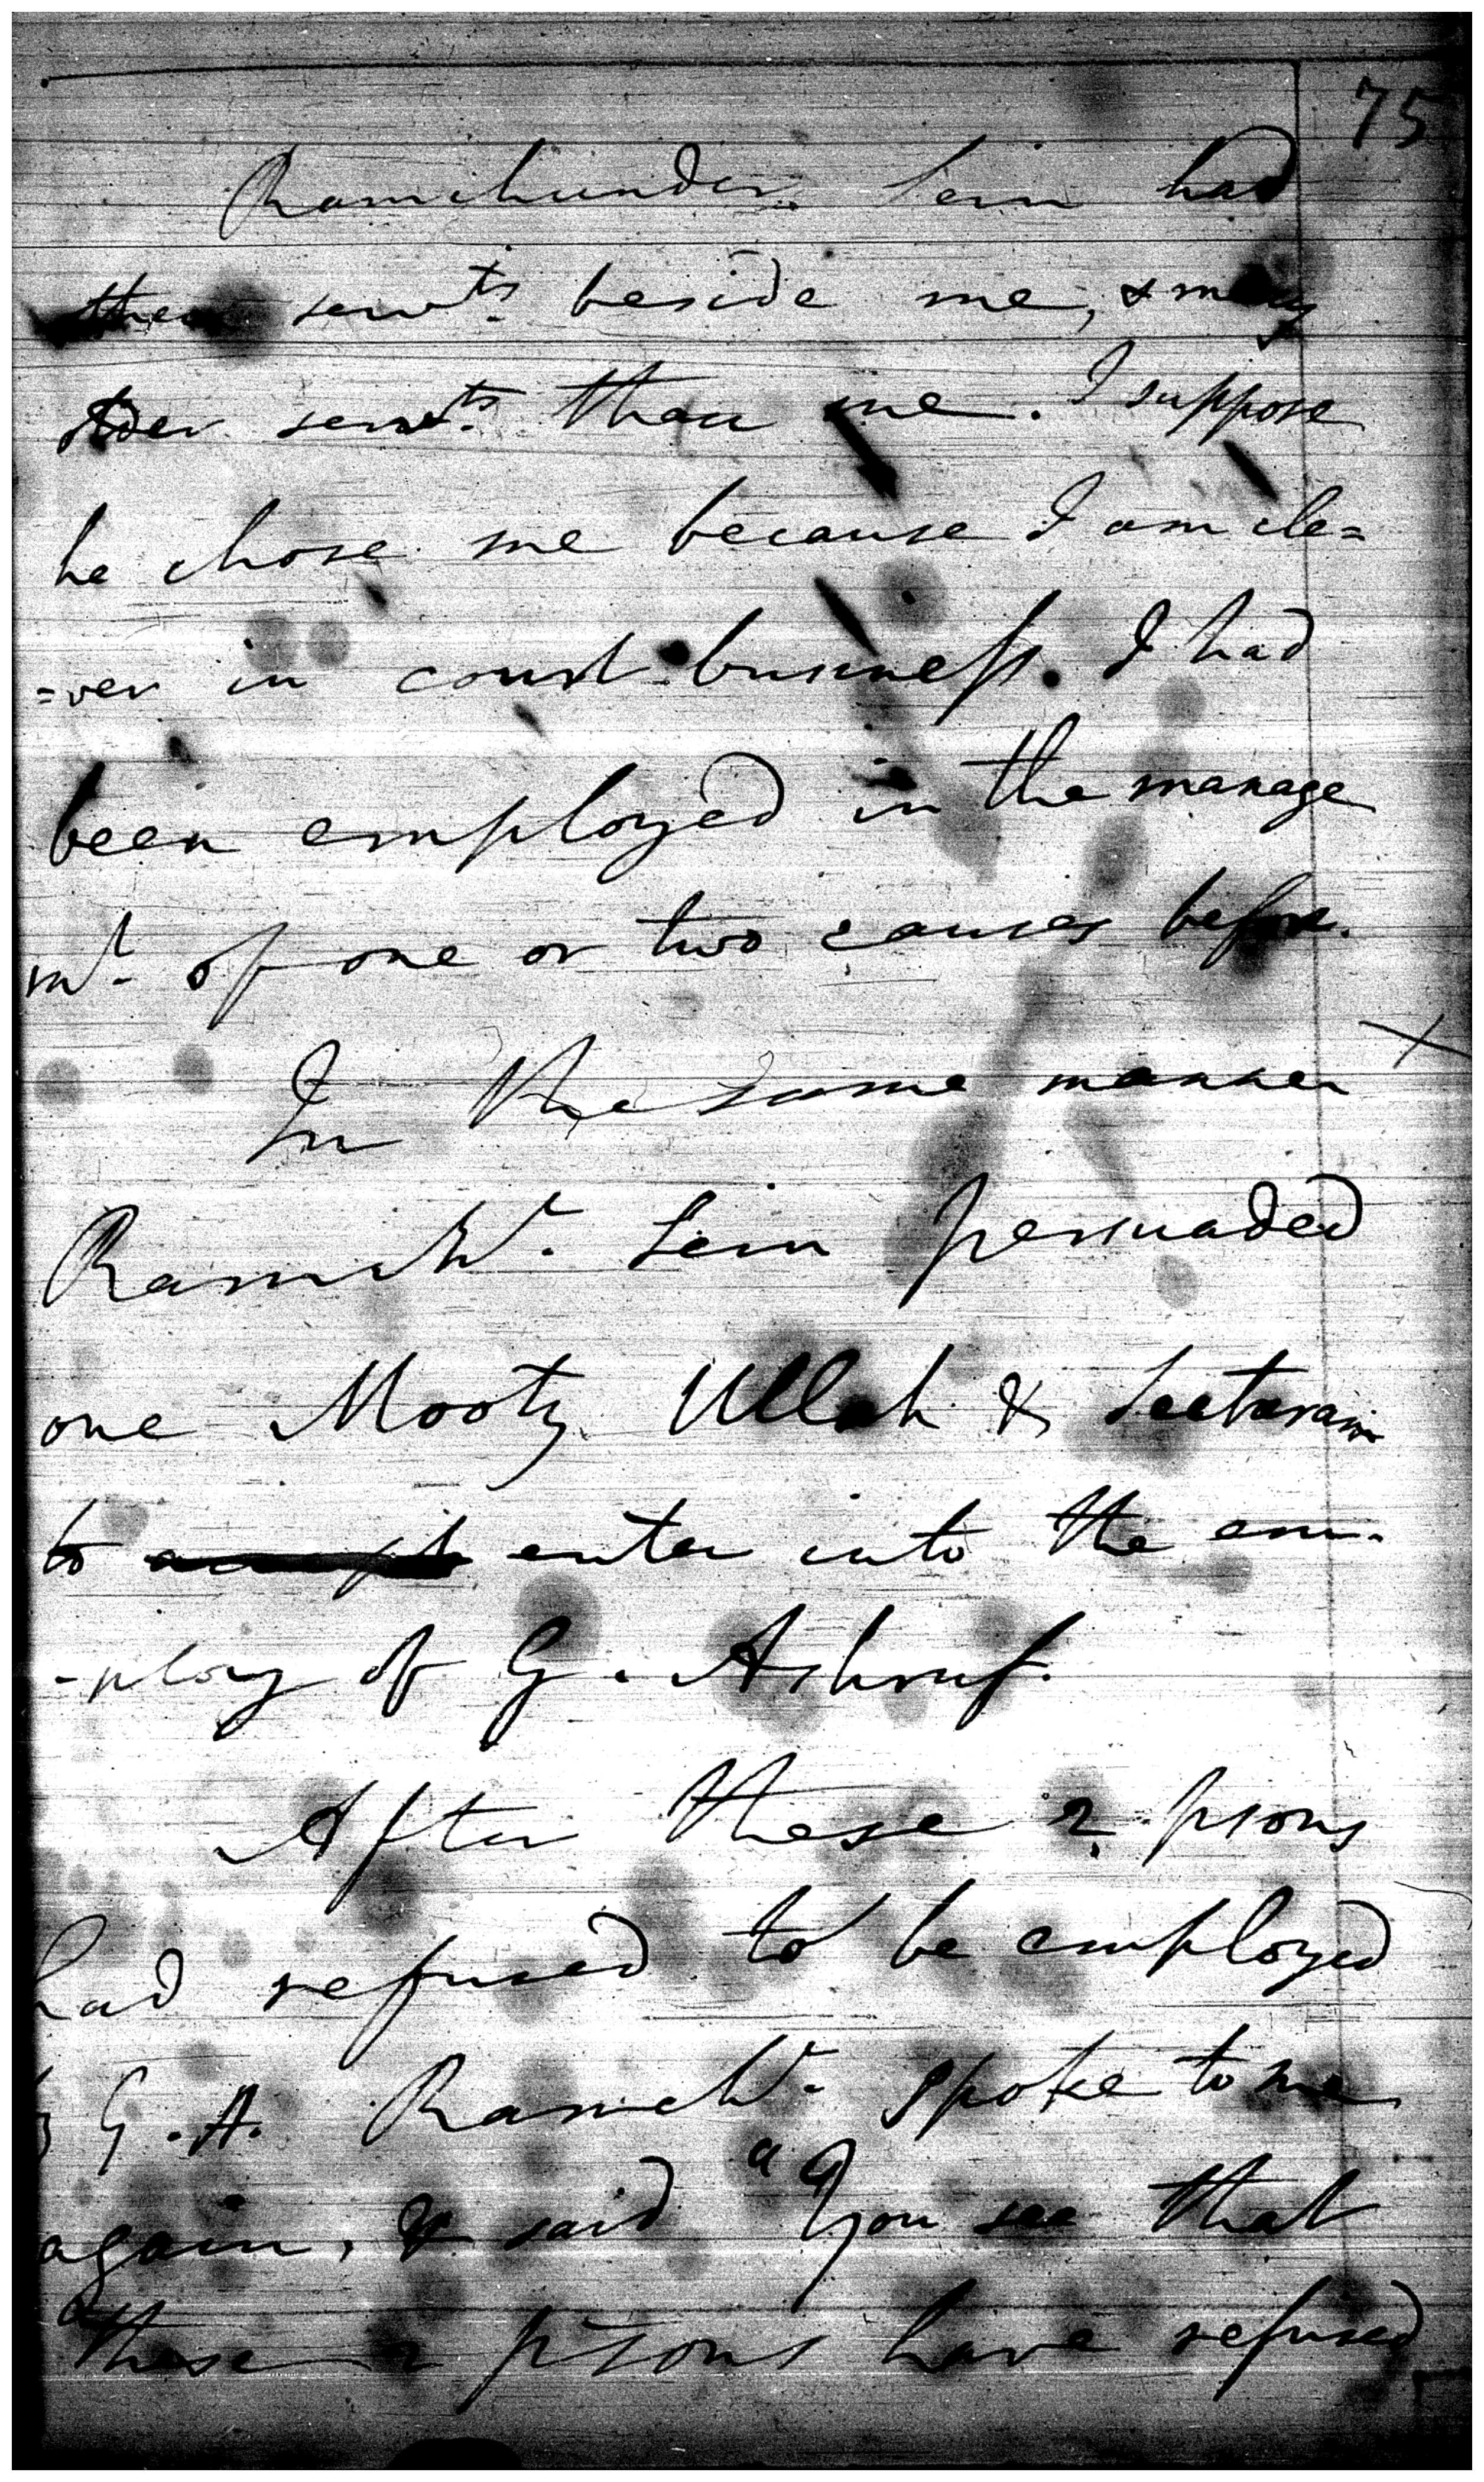 75
Ramchunder Sein had
other servts. beside me, & many
older servts. than me. I suppose
he chose me because I am cle=
=ver in court business. I had
been employed in the manage
mt. of one or two causes before.
In the same manner
Ramchr. Sein persuaded
one Mooty Ullah & Seetaram
to enter into the em-
-ploy of G. Ashruf.
After these 2 psons
had refused to be employed
by G. A. Ramchr. spoke to me
again, & said "You see that
"these 2 psons have refused